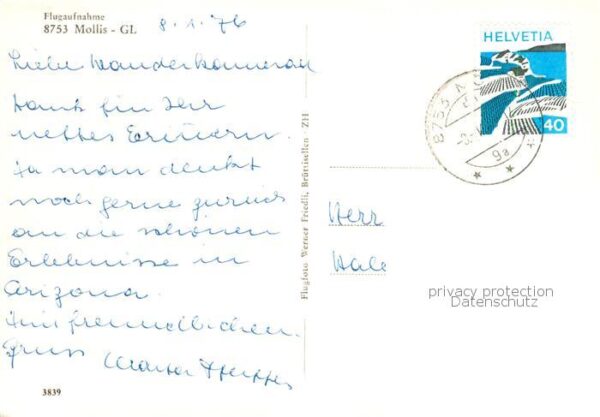 Flugaufnahme
8753 Mollis - GL
8.1.76
Liebe Wanderkamerad
Dank für Ihr
nettes Erinnern.
Ja man denkt
noch gerne zurück
an die schönen
Erlebnisse in
Arizona.
Mit freundlichen
Gruss
Walter
3839
Flugfoto Werner Friedli, Brüttisellen - ZH
HELVETIA
40
8753
9a
Herr
Hale
privacy protection
Datenschutz